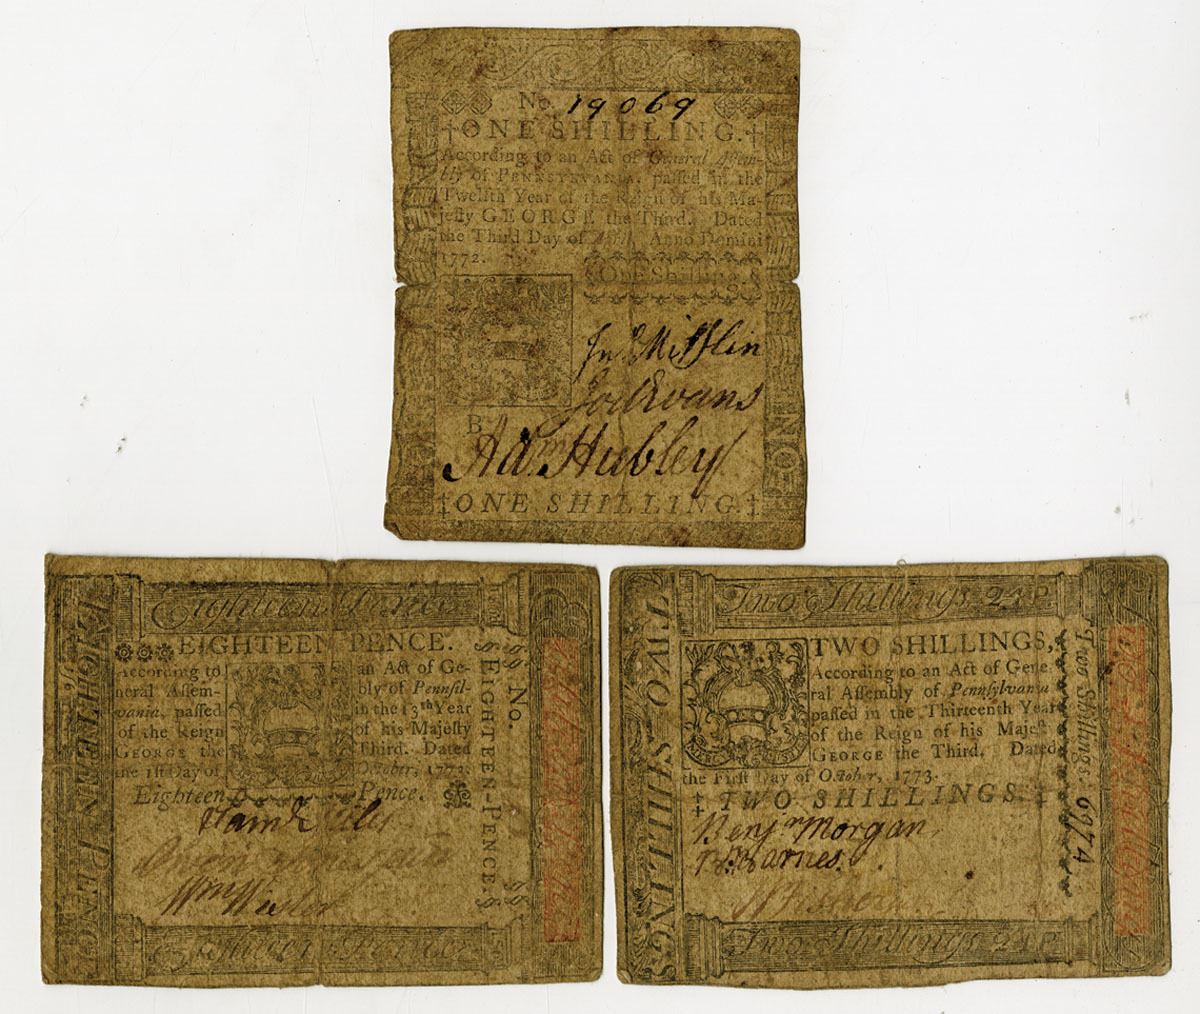 No. 19069
‡ONE SHILLING.‡
According to an Act of General Assem-
bly of PENNSYLVANIA, passed in the
Twelfth Year of the Reign of his Ma-
jesty GEORGE the Third. Dated
the Third Day of April, Anno Domini
1772.
One Shilling.
Jno Mifflin
Joel Evans
B
Adm Hubley
‡ONE SHILLING.‡
Eighteen Pence
EIGHTEEN PENCE.
According to an Act of Ge-
neral Assem- bly of Pennsil-
vania, passed in the 13th Year
of the Reign of his Majesty
GEORGE the Third. Dated
the 1st Day of October, 1773.
Eighteen Pence.
Wm Wister
Eighteen Pence
EIGHTEEN PENCE
No.
EIGHTEEN-PENCE.
Two Shillings 2s.
TWO SHILLINGS,
According to an Act of Gene-
ral Assembly of Pennsylvania
passed in the Thirteenth Year
of the Reign of his Majest.
GEORGE the Third. Dated
the First Day of October, 1773.
‡ TWO SHILLINGS. ‡
Benjn Morgan
Barnes.
Two Shillings 2s.
TWO SHILLINGS
Two Shillings 6974